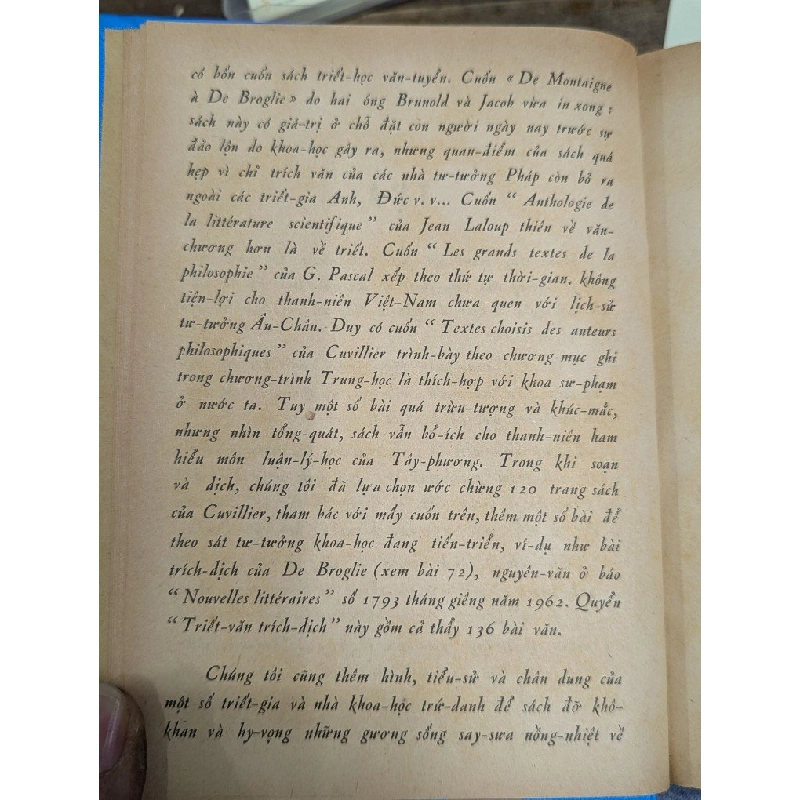 có bốn cuốn sách triết-học văn-tuyển. Cuốn « De Montaigne
à De Broglie » do hai ông Brunold và Jacob vừa in xong ;
sách này có giá-trị ở chỗ đặt con người ngày nay trước sự
đảo lộn do khoa-học gây ra, nhưng quan-điểm của sách quá
hẹp vì chỉ trích văn của các nhà tư-tưởng Pháp còn bỏ ra
ngoài các triết-gia Anh, Đức v.v... Cuốn “ Anthologie de
la littérature scientifique ” của Jean Laloup thiên về văn-
chương hơn là về triết. Cuốn “ Les grands textes de la
philosophie ” của G. Pascal xếp theo thứ tự thời-gian, không
tiện-lợi cho thanh-niên Việt-Nam chưa quen với lịch-sử
tư-tưởng Âu-Châu. Duy có cuốn “ Textes choisis des auteurs
philosophiques ” của Cuvillier trình-bày theo chương mục ghi
trong chương-trình Trung-học là thích-hợp với khoa sư-phạm
ở nước ta. Tuy một số bài quá trừu-tượng và khúc-mắc,
nhưng nhìn tổng-quát, sách vẫn bổ-ích cho thanh-niên ham
hiểu môn luân-lý-học của Tây-phương. Trong khi soạn
và dịch, chúng tôi đã lựa chọn ước chừng 120 trang sách
của Cuvillier, tham bác với mấy cuốn trên, thêm một số bài để
theo sát tư-tưởng khoa-học đang tiến-triển, ví-dụ như bài
trích-dịch của De Broglie (xem bài 72), nguyên-văn ở báo
“ Nouvelles littéraires ” số 1793 tháng giêng năm 1962. Quyển
“ Triết-văn trích-dịch ” này gồm cả thẩy 136 bài văn.
Chúng tôi cũng thêm hình, tiểu-sử và chân dung của
một số triết-gia và nhà khoa-học trứ-danh để sách đỡ khô-
khan và hy-vọng những gương sống say-sưa nồng-nhiệt về